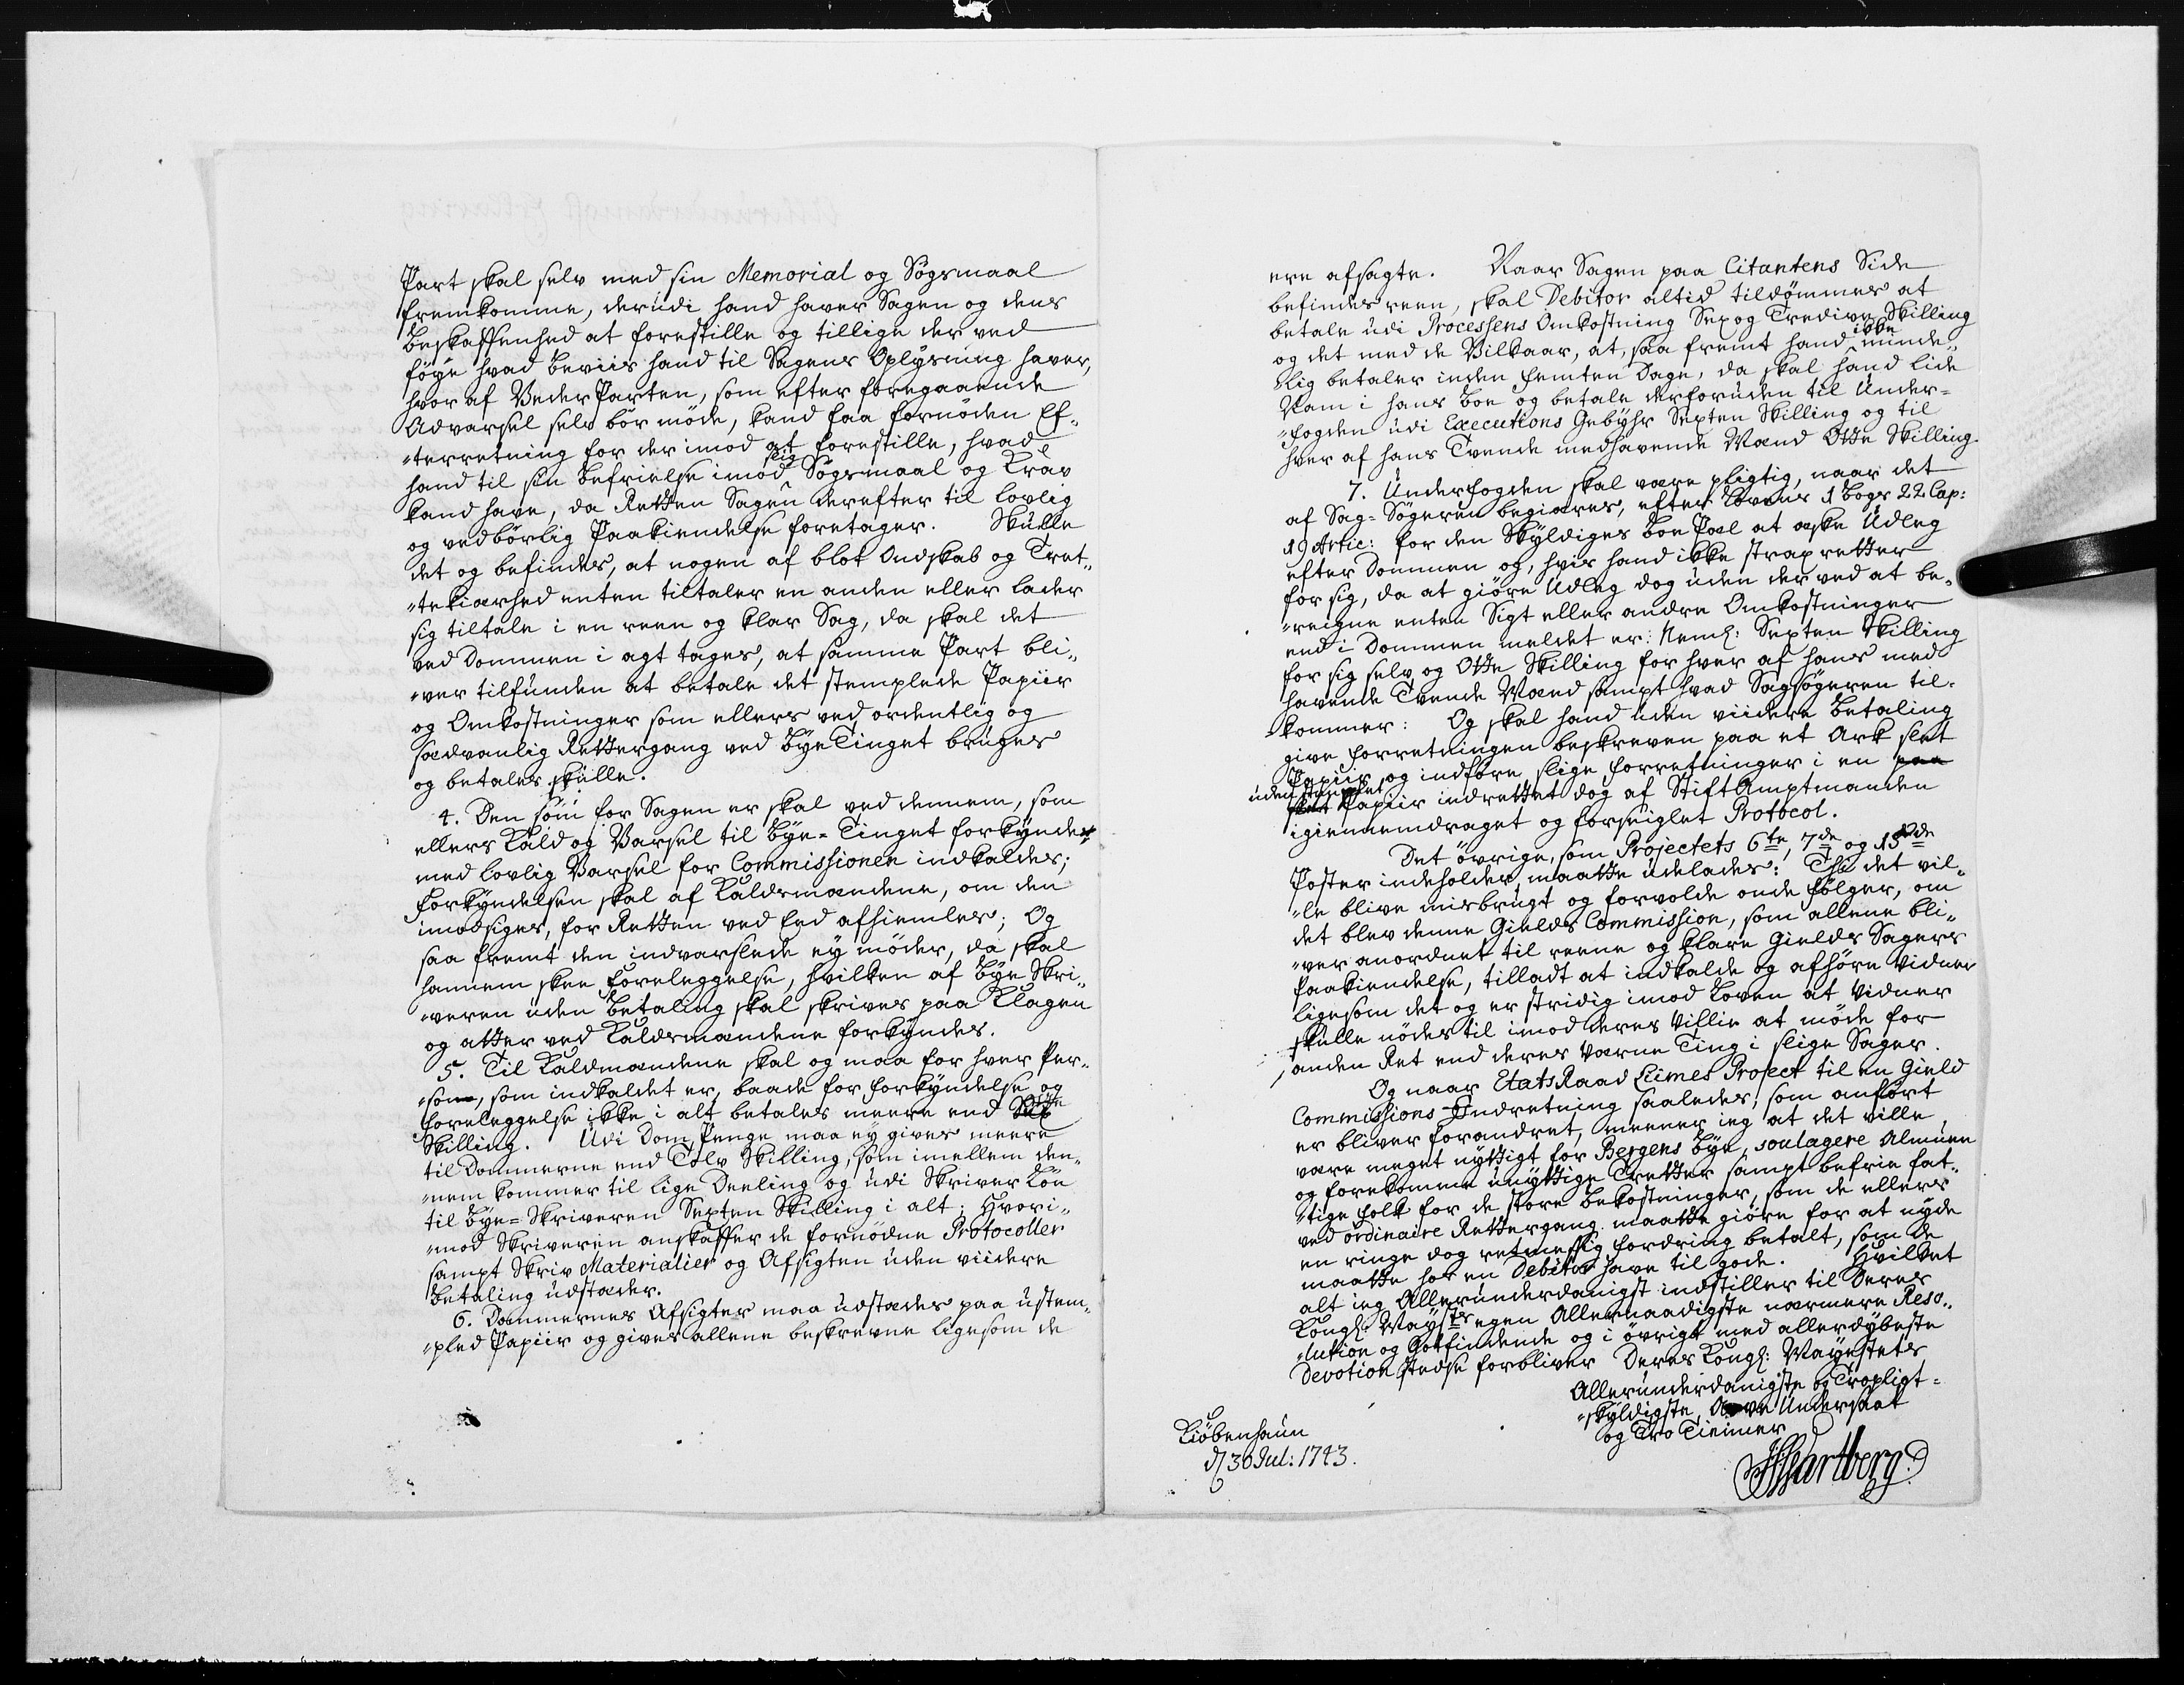 Part skal selv med sin Memorial og Søgsmaal
fremkomme, derudi hand haver Sagen og dens
beskaffenhed at forestille og tillige der ved
føye hvad beviis hand til Sagens Oplysning haver,
hvor af VederParten, som efter foregaaende
Advarsel selv bør møde, kand faa fornøden Ef-
"terretning for der imod at forestille, hvad
hand til sin befrielse imod slig Søgsmaal og Krav
kand have, da Retten Sagen derefter til lovlig
og vedbørlig Paakiendelse foretager. Skulle
det og befindes, at nogen af blot Ondskab og Tret-
"tekiærhed enten tiltaler en anden eller lader
sig tiltale i en reen og klar Sag, da skal det
ved Dommen i agt tages, at samme Part bli-
"ver tilfunden at betale det stemplede Papiir
og Omkostninger som ellers ved ordentlig og
sædvanlig Rettergang ved byeTinget bruges
og betales skulle.
4. Den som for Sagen er skal ved dennem, som
ellers Kald og Varsel til bye-Tinget forkynder
med lovlig Varsel for Commissionen indkaldes;
forkyndelsen skal af Kaldsmændene, om den
imodsiges, for Retten ved Eed afhiemles; Og
saa fremt den indvarslede ey møder, da skal
hannem skee foreleggelse, hvilken af bye Skri-
"veren uden betaling skal skrives paa Klagen
og atter ved Kaldsmændene forkyndes.
5. Til Kaldmændene skal og maa for hver Per-
"son, som indkaldet er, baade for forkyndelse og
foreleggelse ikke i alt betales meere end
Skilling. Udi Dom Penge maa ey gives meere
til Dommerne end Tolv Skilling, som imellem den-
"nem kommer til lige Deeling og udi Skriver Løn
til bye-Skriveren Sexten Skilling i alt; Hvori-
"mod Skriveren anskaffer de fornødne Protocoller
sampt Skriv Materialier og Afsigten uden viidere
betaling udstæder.
6. Dommernes Afsigter maa udstædes paa ustem-
"pled Papiir og gives allene beskrevne ligesom de
ere afsagte. Naar Sagen paa Citantens Side
befindes reen, skal Debitor altid tildømmes at
betale udi Processens Omkostning Sex og Tredive Skilling
og det med de Vilkaar, at, saa fremt hand ikke minde-
"lig betaler inden femten Dage, da skal hand lide
Nam i hans boe og betale derforuden til Under-
"fogden udi Executions Gebyhr Sexten Skilling og til
hver af hans Tvende medhavende Mænd Otte Skilling.
7. Underfogden skal være pligtig, naar det
af Sag-Søgeren begiæres, efter Lovens 1 bogs 22 Cap:
19 Artic: for den Skyldiges boe Pæl at æske Udleg
efter Dommen og, hvis hand ikke strax retter
for sig, da at giøre Udleg dog uden der ved at be-
"reigne enten Sigt eller andre Omkostninger
end i Dommen meldet er: Neml: Sexten Skilling
for sig selv og Otte Skilling for hver af hans med
havende Tvende Mænd sampt hvad Sagsøgeren til-
kommer: Og skal hand uden viidere betaling
give forretningen beskreven paa et Ark slet
Papiir og indføre slige forretninger i en paa
uden stemplet Papiir indrettet dog af StiftAmptmanden
igiennemdraget og forseiglet Protocol.
Det øvrige, som Projectets 6te, 7de og 13de
Poster indeholder maatte udelades: Thi det vil-
"le blive misbrugt og forvolde onde følger, om
det blev denne Gields Commission, som allene bli-
"ver anordnet til reene og klare Gields Sagers
Paakiendelse, tilladt at indkalde og afhøre Vidner
ligesom det og er stridig imod Loven at Vidner
skulle nødes til imod deres Villie at møde for
anden Ret end deres Værne Ting i slige Sager.
Og naar EtatsRaad Liimes Project til en Gield
Commissions-Indretning saaledes, som anført
er bliver forandret, meener ieg at det ville
være meget nyttigt for Bergens bye, soulagere Almuen
og forekomme unyttige Tretter sampt befrie fat-
"tige folk for de store bekostninger, som de ellers
ved ordinaire Rettergang maatte giøre for at nyde
en ringe dog retmessig fordring betalt, som de
maatte hos en Debitor have til gode. Hvilket
alt ieg Allerunderdanigst indstiller til Deres
Kongl: Mayts egen Allernaadigste nærmere Reso-
"lution og Gotfindende og i øvrigt med allerdybeste
Devotion stedse forbliver Deres Kongl: Mayestets
Allerunderdanigste og Tropligt-
"skyldigste Arve Undersaat
og Tro Tienner
Kiøbenhaun
d 30 Jul: 1743.
Hartberg